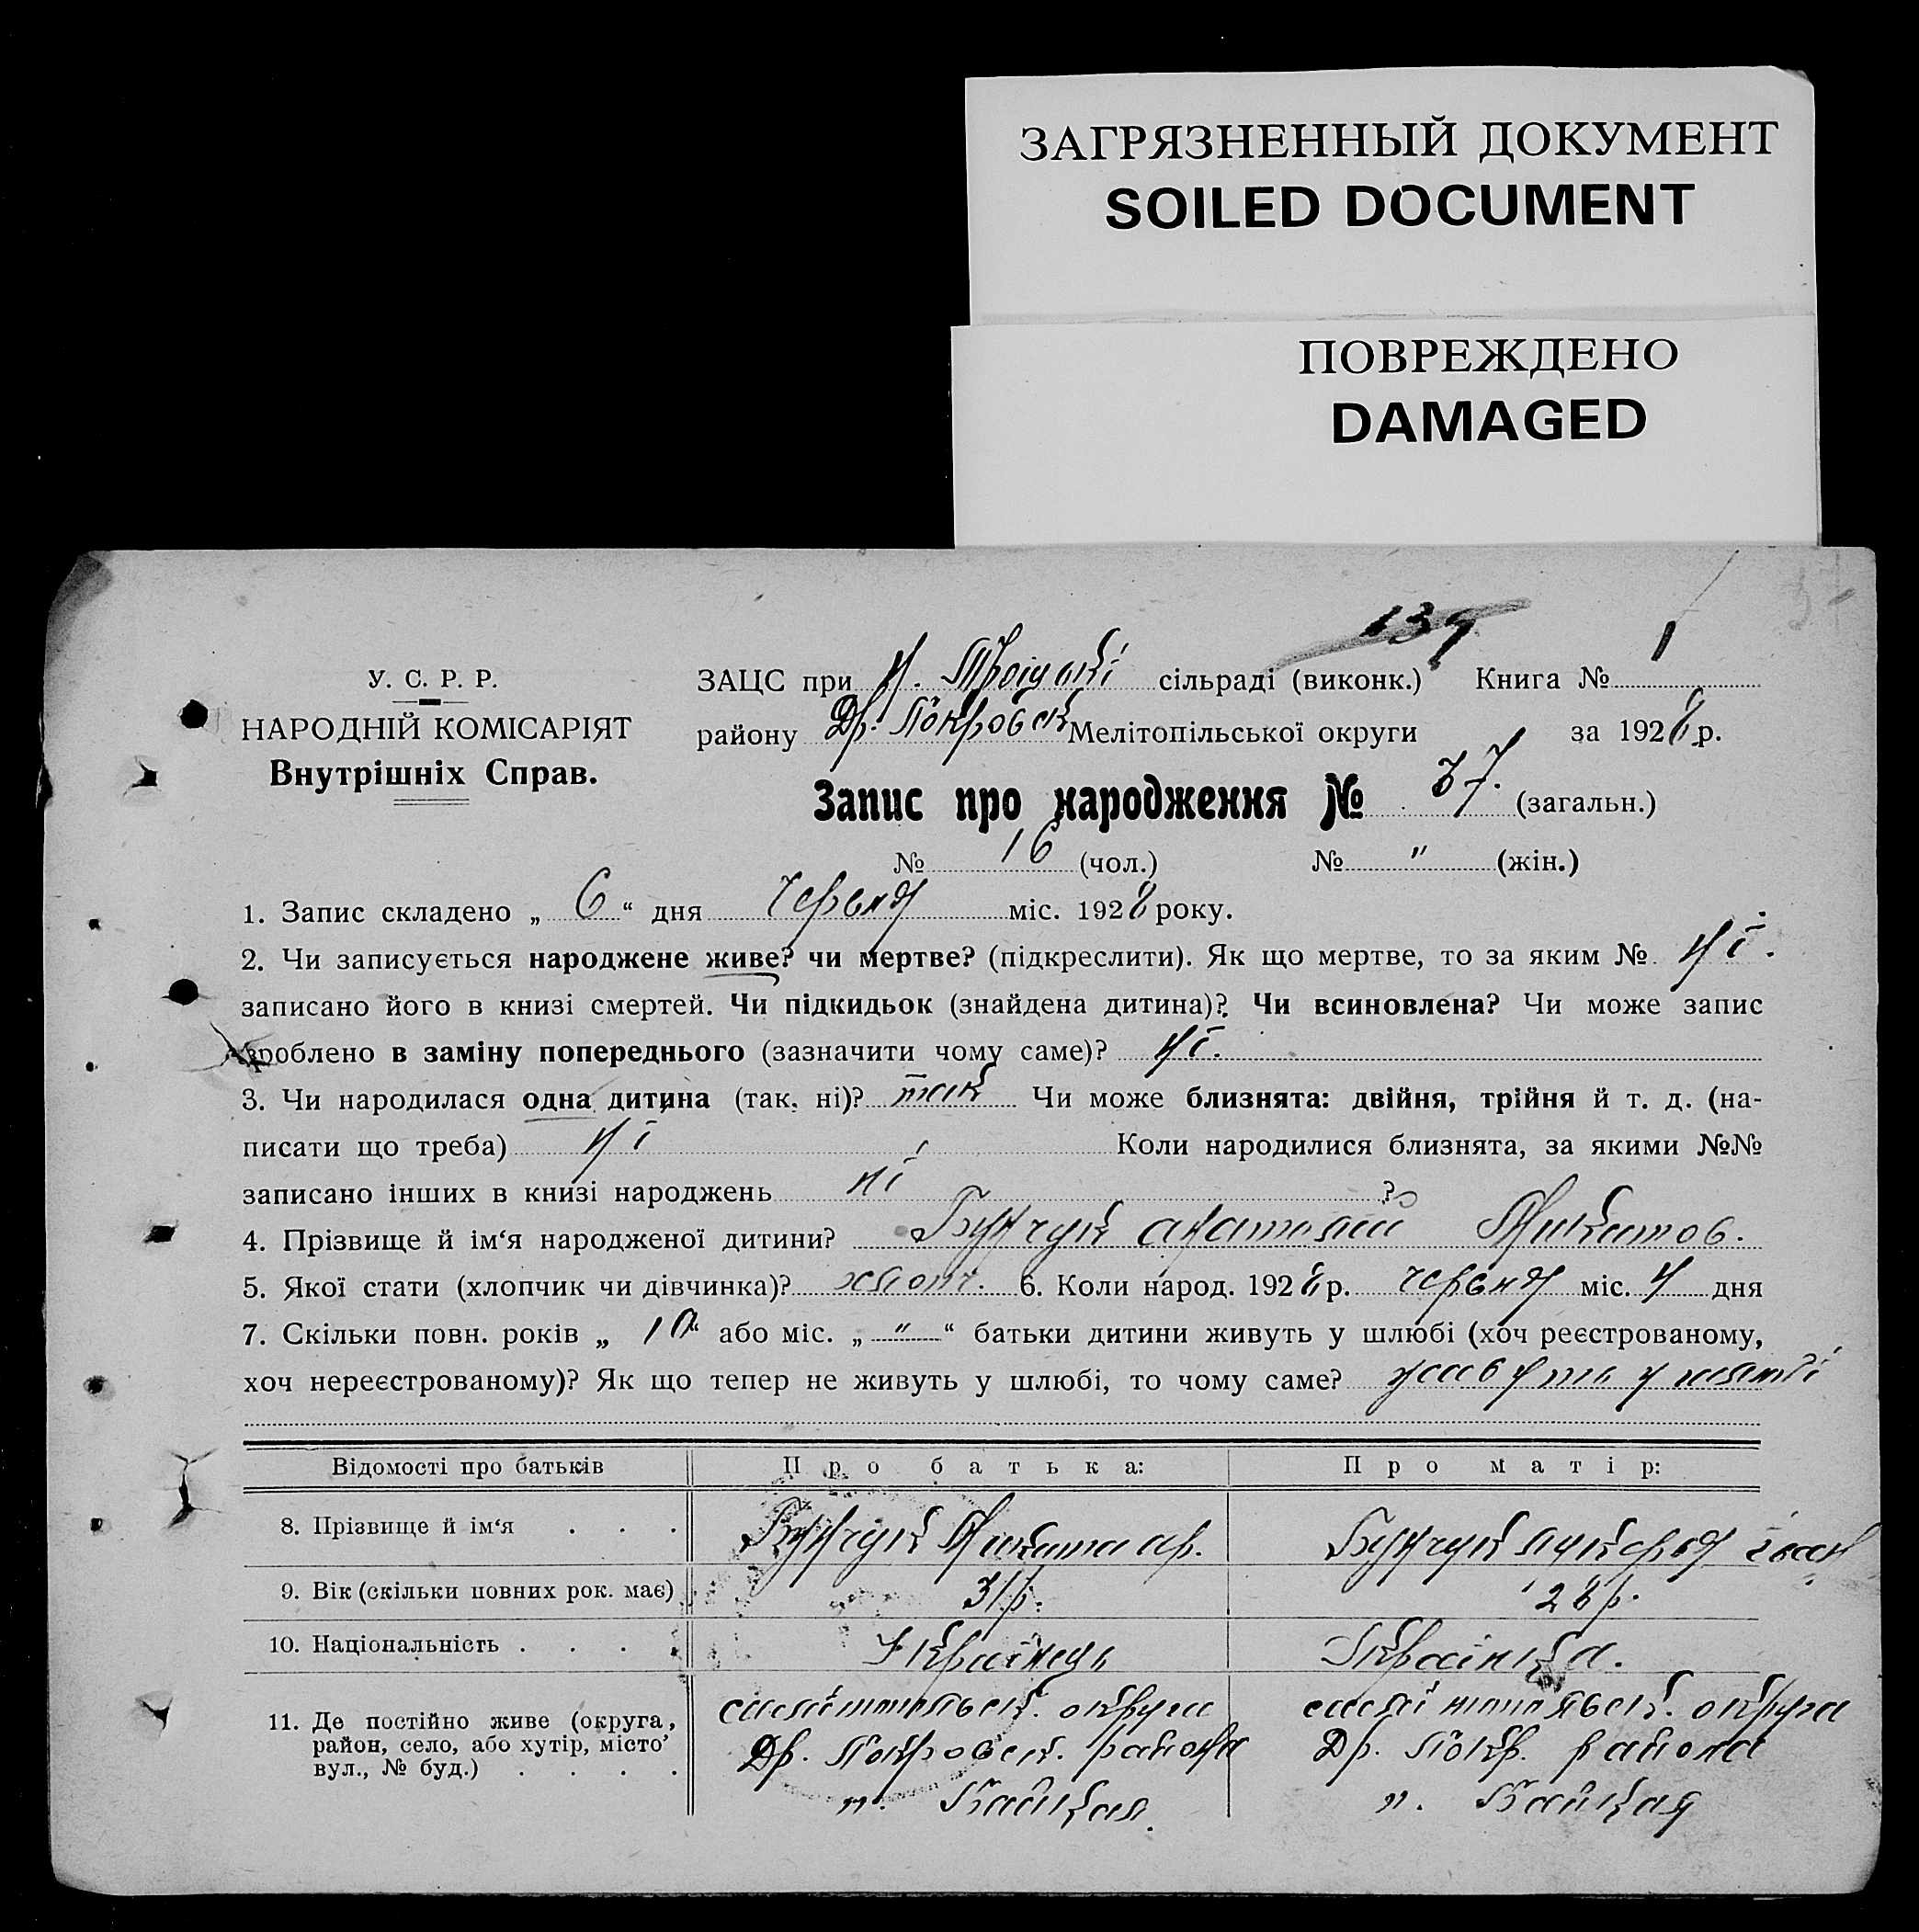 ЗАГРЯЗНЕННЫЙ ДОКУМЕНТ
SOILED DOCUMENT
ПОВРЕЖДЕНО
DAMAGED
37
139
У. С. Р. Р.
НАРОДНІЙ КОМІСАРІЯТ
Внутрішніх Справ.
ЗАЦС при Н. Троїцькі сільраді (виконк.) Книга № 1
району Др. Покровськ Мелітопільської округи за 1928 р.
Запис про народження № 37. (загальн.)
№ 16 (чол.) № " (жін.)
1. Запис складено „ 6 “ дня червня міс. 1928 року.
2. Чи записується народжене живе? чи мертве? (підкреслити). Як що мертве, то за яким № ні.
записано його в книзі смертей. Чи підкидьок (знайдена дитина)? Чи всиновлена? Чи може запис
зроблено в заміну попереднього (зазначити чому саме)? ні.
3. Чи народилася одна дитина (так, ні)? так Чи може близнята: двійня, трійня й т. д. (на-
писати що треба) ні Коли народилися близнята, за якими №№
записано інших в книзі народжень ні ?
4. Прізвище й ім‘я народженої дитини? Бунчук Анатолій Микитов.
5. Якої стати (хлопчик чи дівчинка)? хлопч. 6. Коли народ. 1928 р. червня міс. 4 дня
7. Скільки повн. років „ 10 “ або міс. „ " “ батьки дитини живуть у шлюбі (хоч реєстрованому,
хоч нереєстрованому)? Як що тепер не живуть у шлюбі, то чому саме? живуть у шлюбі
Відомості про батьків Про батька: Про матір:
8. Прізвище й ім‘я . . . Бунчук Микита Ар. Бунчук Лукерья Іван
9. Вік (скільки повних рок. має) 31 р. 28 р.
10. Національність . . . . Українець Українка.
11. Де постійно живе (округа, район, село, або хутір, місто, вул., № буд.) . . . .
Мелітопільськ. округа Мелітопільськ. округа
Др. Покровськ. района Др. Покр. района
п. Байцкая. п. Байцкая